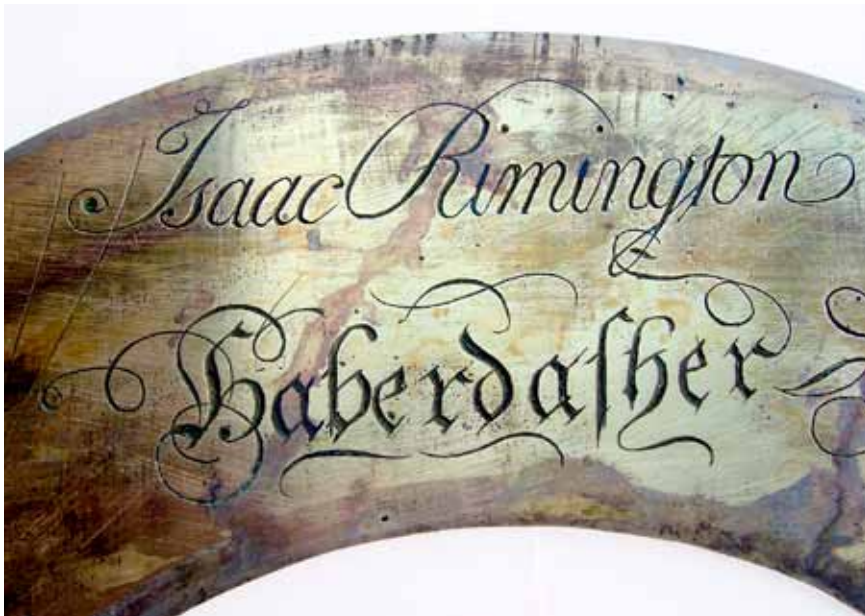 Isaac Rimington
Haberdaſher